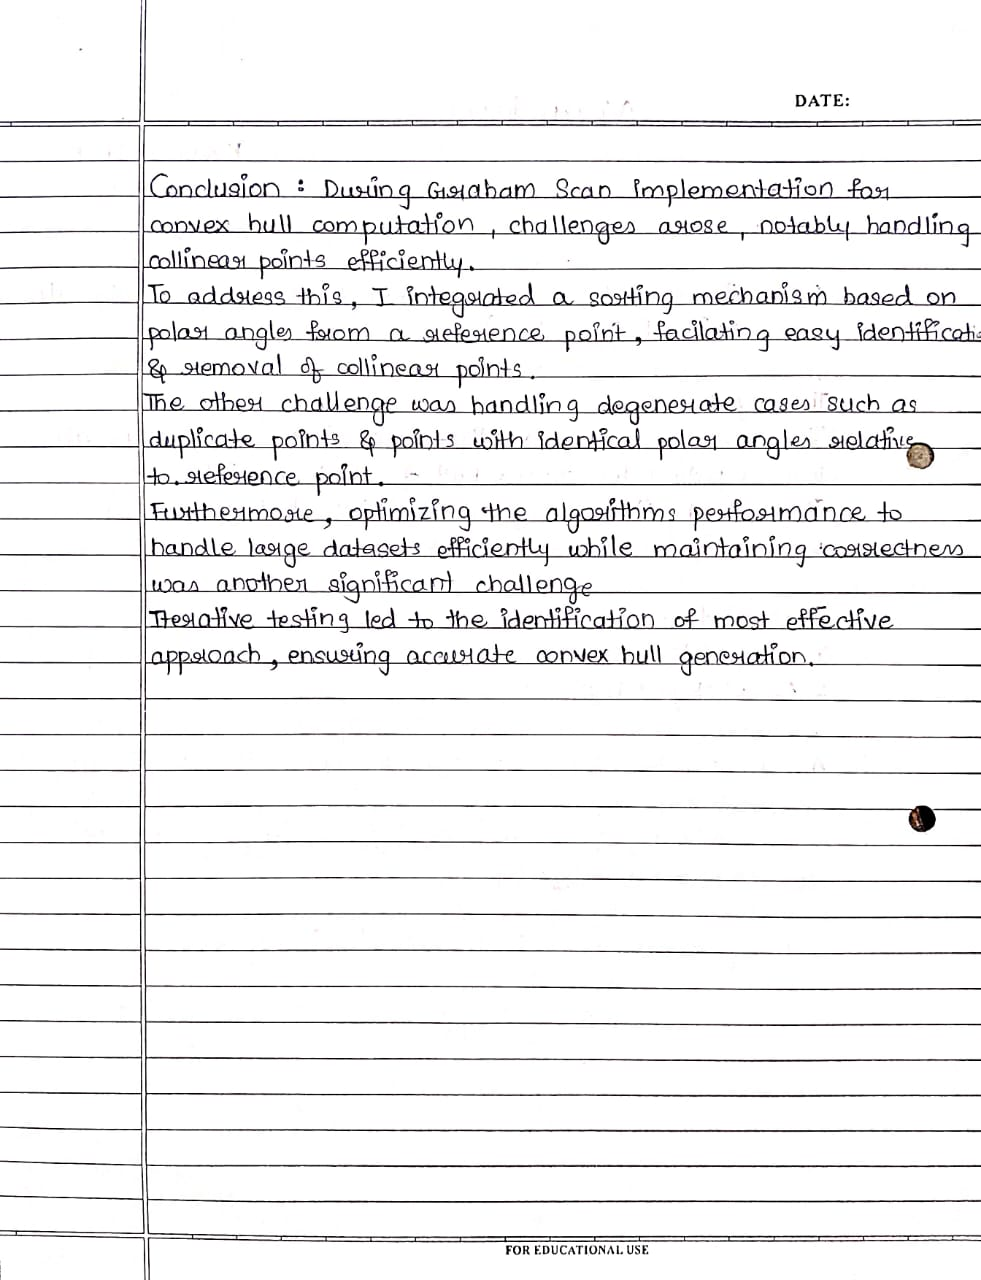 DATE:
Conclusion : During Graham Scan implementation for
convex hull computation, challenges arose, notably handling
collinear points efficiently.
To address this, I integrated a sorting mechanism based on
polar angles from a reference point, facilating easy identificati
& removal of collinear points.
The other challenge was handling degenerate cases such as
duplicate points & points with identical polar angles relative
to reference point.
Furthermore, optimizing the algorithms performance to
handle large datasets efficiently while maintaining correctness
was another significant challenge
Iterative testing led to the identification of most effective
approach, ensuring accurate convex hull generation.
FOR EDUCATIONAL USE